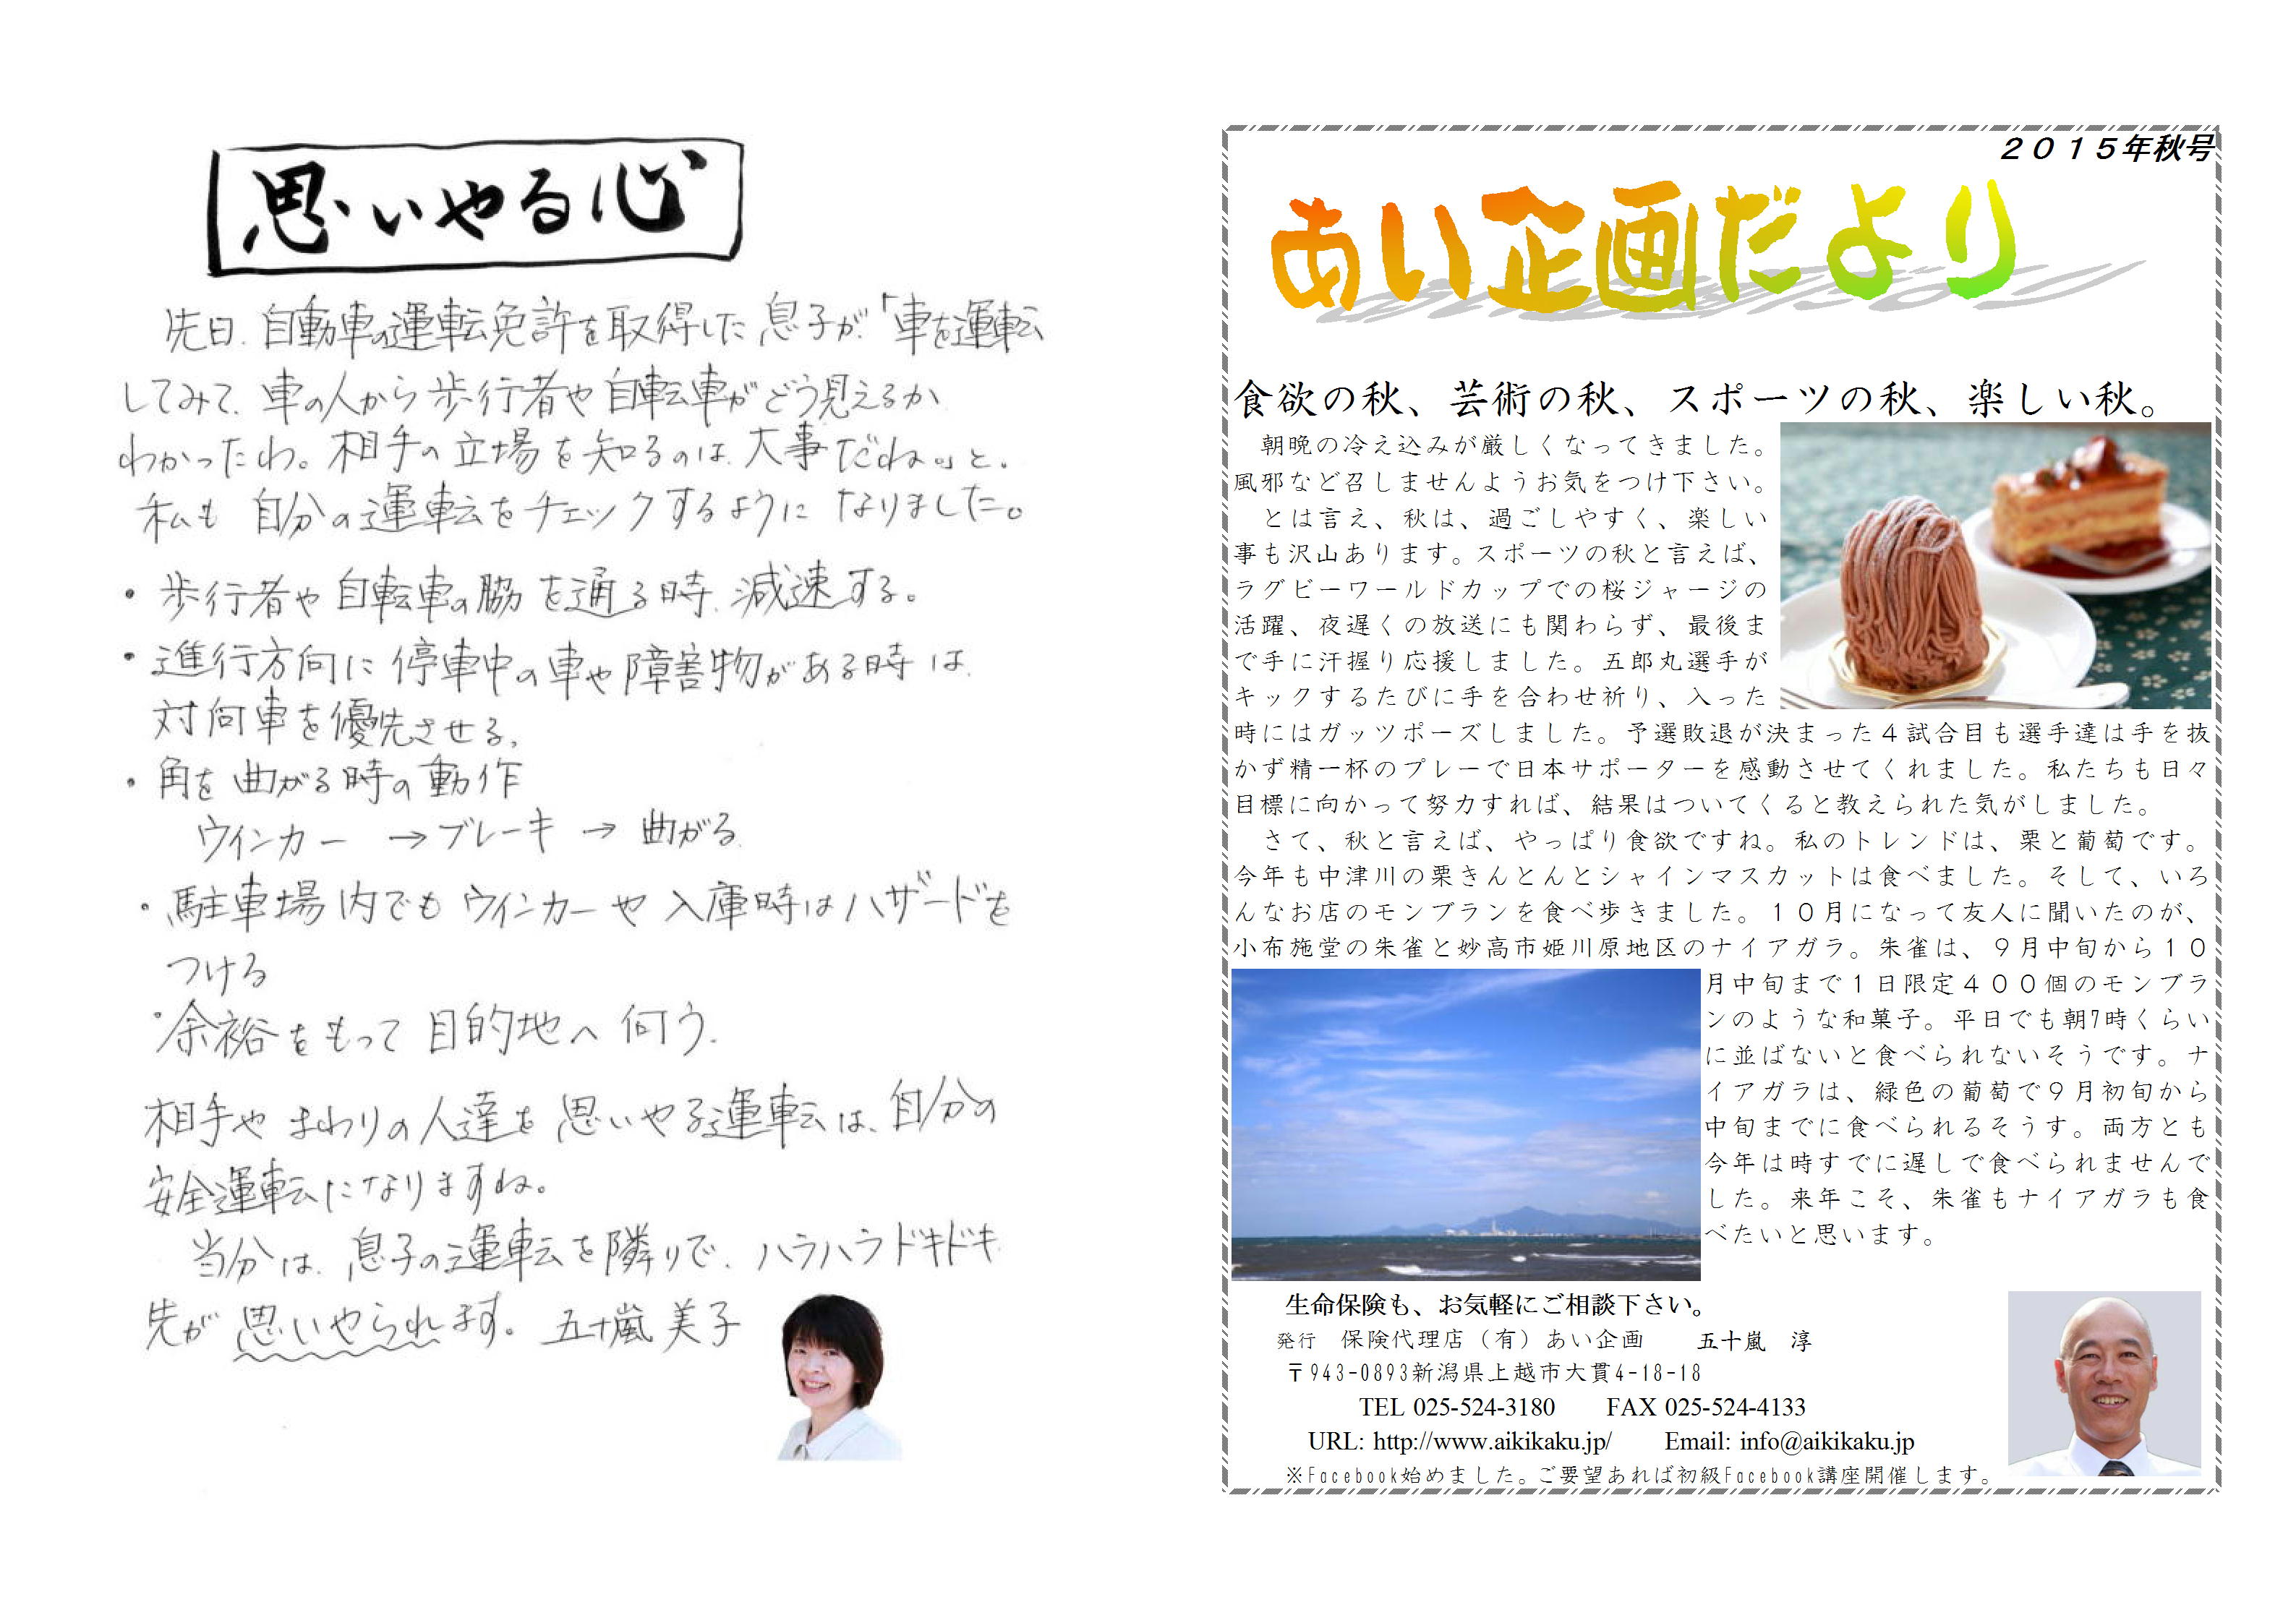 思いやる心
先日、自動車の運転免許を取得した息子が「車を運転
してみて、車の人から歩行者や自転車がどう見えるか
わかったわ。相手の立場を知るのは、大事だね。」と。
私も自分の運転をチェックするようになりました。
・歩行者や自転車の脇を通る時、減速する。
・進行方向に停車中の車や障害物がある時は、
対向車を優先させる。
・角を曲がる時の動作
ウインカー→ブレーキ→曲がる
・駐車場内でもウインカーや入庫時はハザードを
つける
・余裕をもって目的地へ伺う。
相手やまわりの人達を思いやる運転は、自分の
安全運転になりますね。
当分は、息子の運転を隣りで、ハラハラドキドキ
先が思いやられます。五十嵐美子
2015年秋号
あい企画だより
食欲の秋、芸術の秋、スポーツの秋、楽しい秋。
朝晩の冷え込みが厳しくなってきました。
風邪など召しませんようお気をつけ下さい。
とは言え、秋は、過ごしやすく、楽しい
事も沢山あります。スポーツの秋と言えば、
ラグビーワールドカップでの桜ジャージの
活躍、夜遅くの放送にも関わらず、最後ま
で手に汗握り応援しました。五郎丸選手が
キックするたびに手を合わせ祈り、入った
時にはガッツポーズしました。予選敗退が決まった4試合目も選手達は手を抜
かず精一杯のプレーで日本サポーターを感動させてくれました。私たちも日々
目標に向かって努力すれば、結果はついてくると教えられた気がしました。
さて、秋と言えば、やっぱり食欲ですね。私のトレンドは、栗と葡萄です。
今年も中津川の栗きんとんとシャインマスカットは食べました。そして、いろ
んなお店のモンブランを食べ歩きました。10月になって友人に聞いたのが、
小布施堂の朱雀と妙高市姫川原地区のナイアガラ。朱雀は、9月中旬から10
月中旬まで1日限定400個のモンブラ
ンのような和菓子。平日でも朝7時くらい
に並ばないと食べられないそうです。ナ
イアガラは、緑色の葡萄で9月初旬から
中旬までに食べられるそうす。両方とも
今年は時すでに遅しで食べられませんで
した。来年こそ、朱雀もナイアガラも食
べたいと思います。
生命保険も、お気軽にご相談下さい。
発行 保険代理店（有）あい企画 五十嵐 淳
〒943-0893新潟県上越市大貫4-18-18
TEL 025-524-3180 FAX 025-524-4133
URL: http://www.aikikaku.jp/ Email: info@aikikaku.jp
※Facebook始めました。ご要望あれば初級Facebook講座開催します。